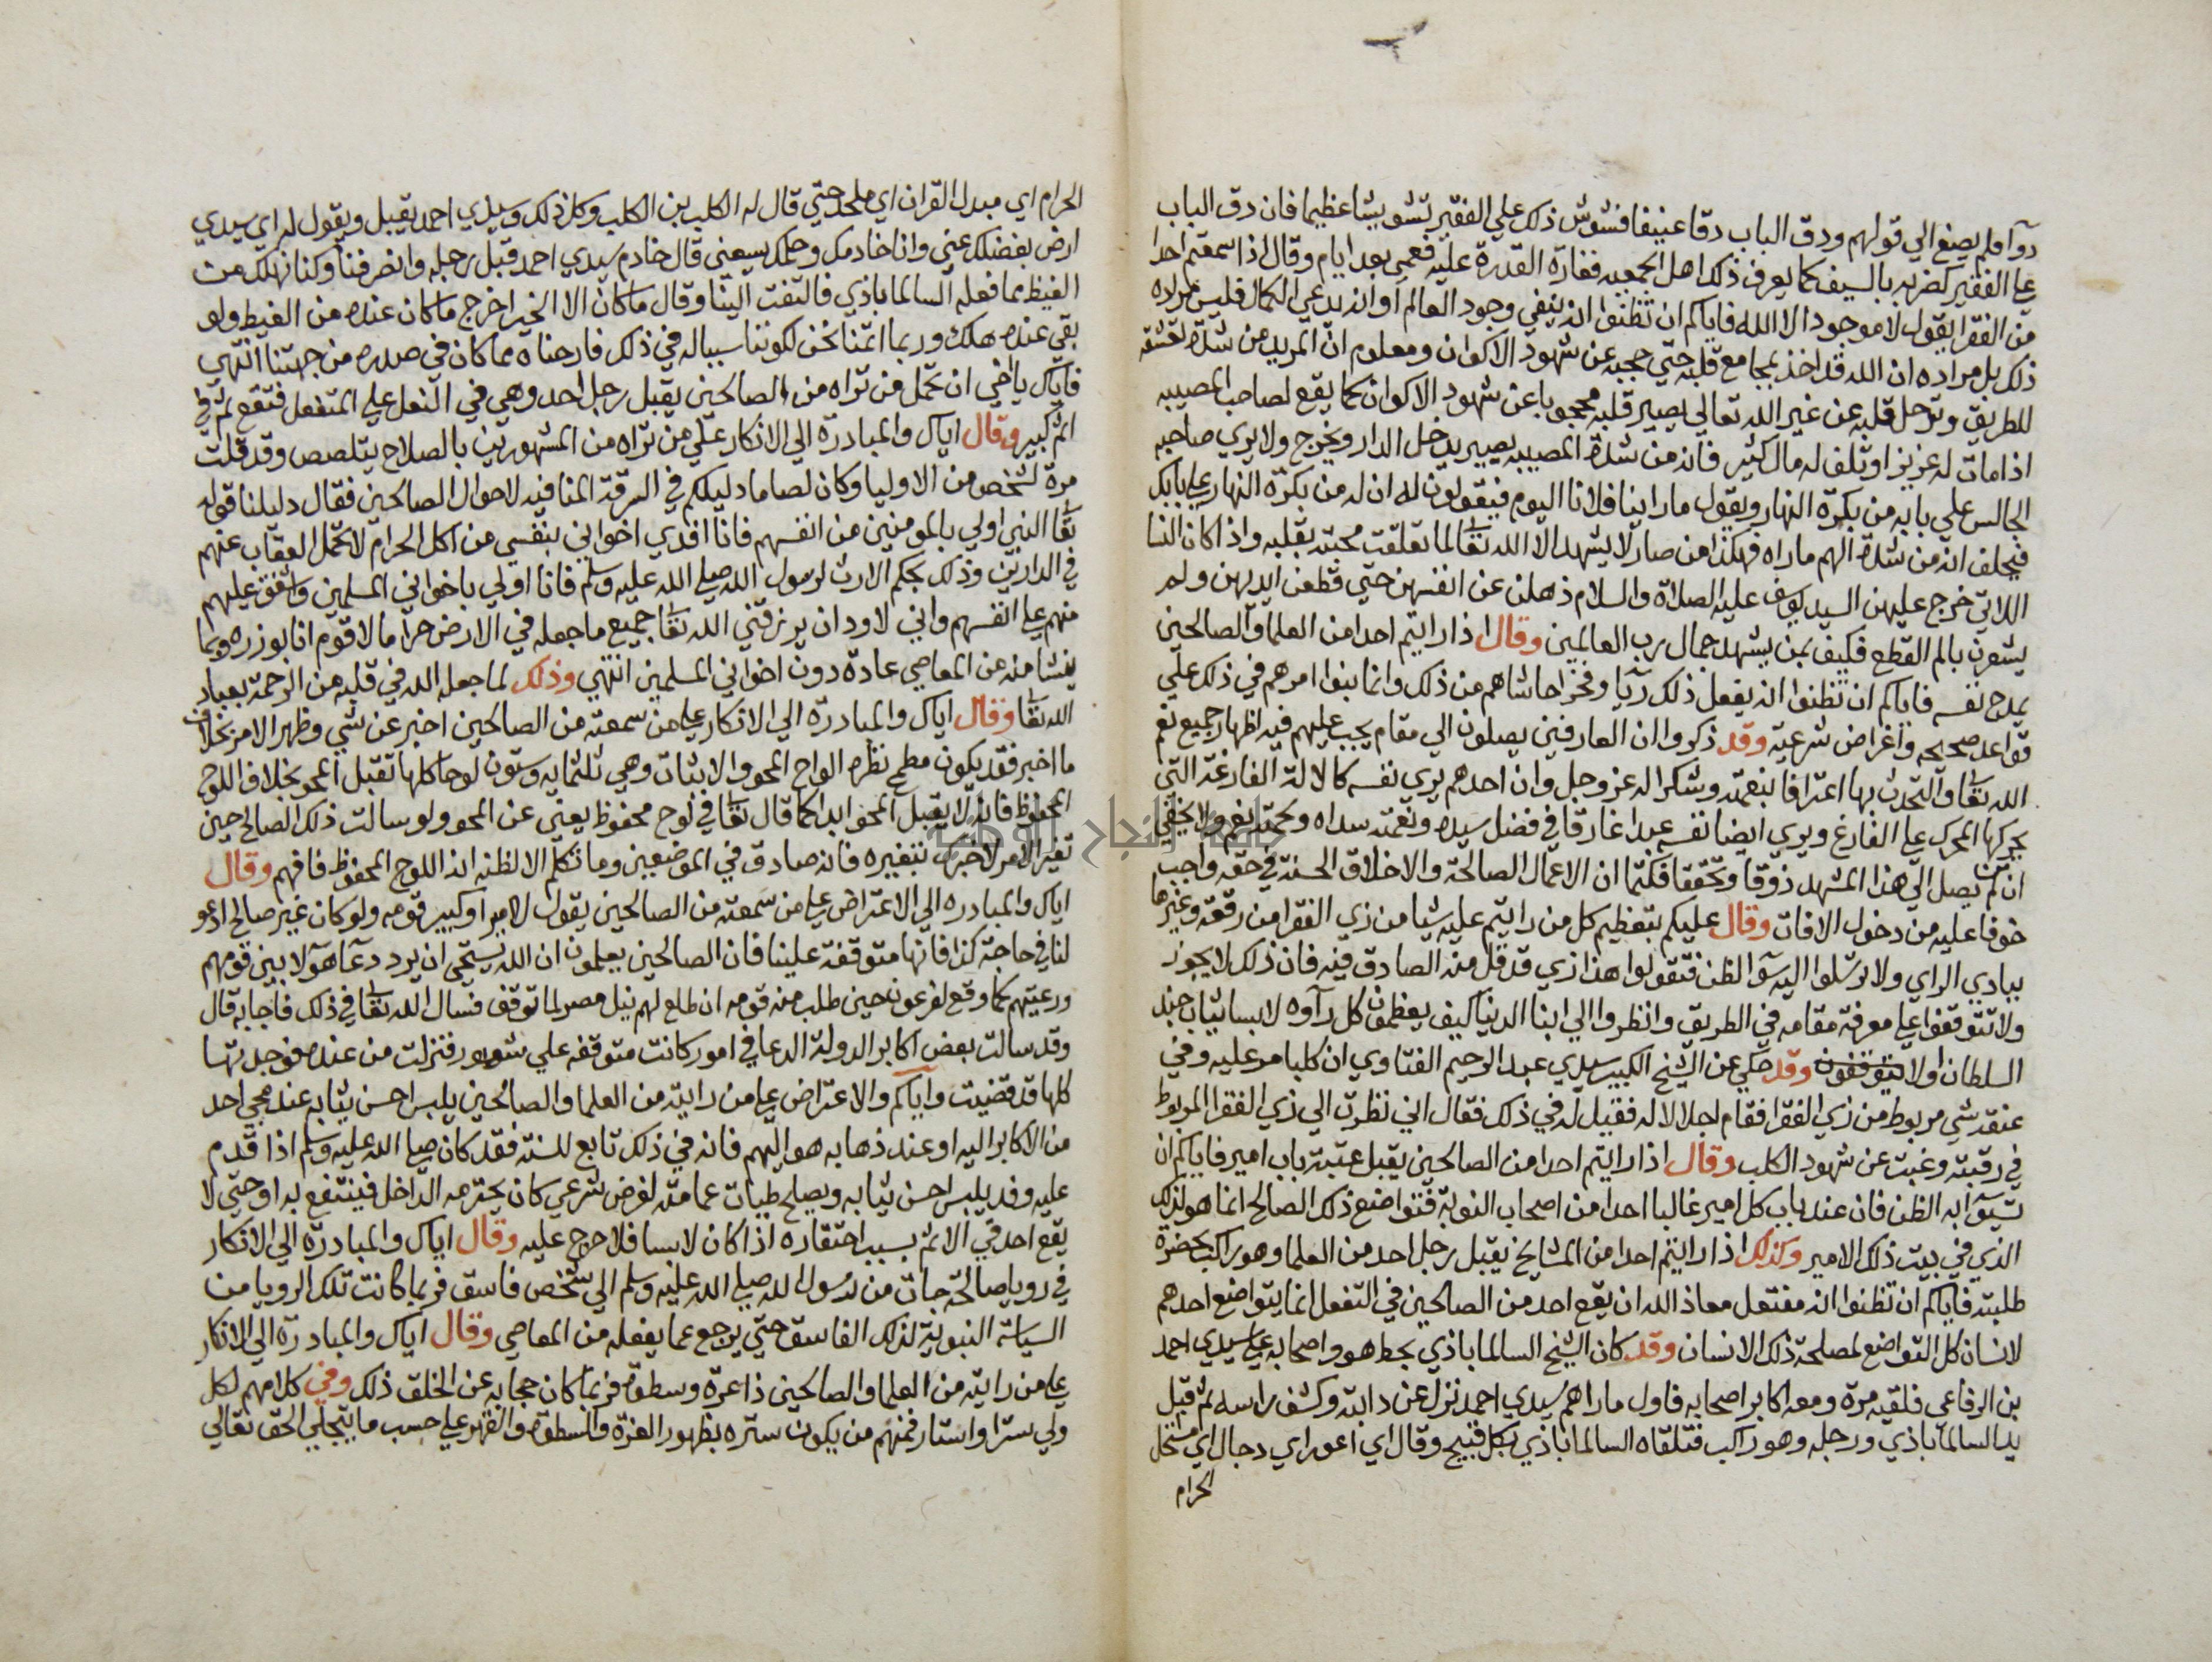 دوآ فلم يصغ الي قولهم ودق الباب دقا عنيفا فشوش ذلك علي الفقير تشويشا عظيما فان دق الباب
علي الفقير كضربه بالسيف كما يعرف ذلك اهل الجمعيه فغارة القدرة عليه فعمي بعد ايام وقال اذا سمعتم احدا
من الفقرا يقول لا موجود الا الله فاياكم ان تظنوا انه ينفي وجود العالم او انه يدعي الكمال فليس مراده
ذلك بل مراده ان الله قد اخذ بمجامع قلبه حتي حجبه عن شهود الاكوان ومعلوم ان المريد من شدة تعشقه
للطريق وترحل قلبه عن غير الله تعالي يصير قلبه محجوبا عن شهود الاكوان كما يقع لصاحب المصيبه
اذا مات له عزيز او تلف له مال كثير فانه من شدة المصيبه يصير يدخل الدار ويخرج ولا يري صاحبه
الجالس علي بابه من بكرة النهار ويقول ما راينا فلانا اليوم فيقولون له ان له من بكرة النهار علي بابك
فيحلف انه من شدة الهم ماراه فهكذا من صار لا يشهد الا الله تقا لما تعلقت محبته بقلبه واذا كان النسا
اللاتي خرج عليهن السيد يوسف عليه الصلاة والسلام ذهلن عن انفسهن حتي قطعن ايديهن ولم
يشعرن بالم القطع فكيف بمن يشهد جمال رب العالمين وقال اذا رايتم احدا من العلما والصالحين
يمدح نفسه فاياكم ان تظنوا انه يفعل ذلك ريا وفخرا حاشاهم من ذلك وانما بنوا امرهم في ذلك علي
قواعد صحيحه واغراض شرعيه وقد ذكروا ان العارفين يصلون الي مقام يجب عليهم فيه اظهار جميع نعم
الله تقا والتحدث بها اعترافا بنعمته وشكرا له عز وجل وان احدهم يري نفسه كالالة الفارغة التي
يحركها المحرك علي الفارغ ويري ايضا نفسه عبدا غارقا في فضل سيده ونعمته سداه ولحمته نعم ولا يخفي
ان من لم يصل الي هذا المشهد ذوقا وتحققا فكتمان الاعمال الصالحة والاخلاق الحسنة في حقه واجب
خوفا عليه من دخول الافات وقال عليكم بتعظيم كل من رايتم عليه شيا من زي الفقرا من رقعة وغيرها
ببادي الراي ولا ترسلوا اليه سوا الظن فتقولوا هذا زي قد قل منه الصادق فيه فان ذلك لا يجوز
ولا تتوقفوا علي معرفة مقامه في الطريق وانظروا الي ابنا الدنيا كيف يعظمون كل رآوه لابسا ثياب جند
السلطان اولا يتوقفون وقد حكي عن الشيخ الكبير سيدي عبد الرحيم القناوي ان كلبا مر عليه وفي
عنقه شي مربوط من زي الفقرا فقام اجلالا له فقيل له في ذلك فقال اني نظرت الي زي الفقرا المربوط
في رقبته وغبت عن شهود الكلب وقال اذا رايتم احدا من الصالحين يقبل عتبة باب امير فاياكم ان
تسيوا به الظن فان عند باب كل امير غالبا احدا من اصحاب النوبة فتواضع ذلك الصالح انما هو لذلك
الذي في بيت ذلك الامير وكذلك اذا رايتم احدا من المشايخ يقبل رجل احد من العلما وهو راكب بحضرة
طلبته فاياكم ان تظنوا انه مفتعل معاذ الله ان يقع احد من الصالحين في التفعل انما يتواضع احدهم
لانسان كل التواضع لمصلحة ذلك الانسان وقد كان الشيخ السالماباذي يحط هو واصحابه علي سيدي احمد
بن الرفاعي فلقيه مرة ومعه اكابر اصحابه فاول ما راهم سيدي احمد نزل عن دابته وكشف راسه ثم قبل
يد السالماباذي ورجله وهو راكب فتلقاه السالماباذي بكل قبيح وقال اي اعور اي دجال اي مستحل
الحرام
الحرام اي مبدل القران اي ملحد حتي قال له الكلب بن الكلب وكل ذلك وسيدي احمد يقبل ويقول له اي سيدي
ارض بفضلك عني وانا خادمك وحلمك يسعني قال خادم سيدي احمد قبل رجله وانصرفنا وكنا نهلك من
الغيظ مما فعله السالماباذي فالتفت الينا وقال ما كان الا الخير اخرج ما كان عنده من الغيظ ولو
بقي عنده هلك وربما اثمنا نحن لكوننا سببا له في ذلك فارحناه مما كان في صدره من جهتنا انتهي
فاياك يا اخي ان تحمل من تراه من الصالحين يقبل رجل احد وهي في النعل علي المتفعل فتقع ثم في
اثم كبير وقال اياك والمبادرة الي الانكار علي من تراه من المشهورين بالصلاح يتلصص وقد قلت
مرة لشخص من الاوليا وكان لصا ما دليلكم في السرقة المنافيه لاحوال الصالحين فقال دليلنا قوله
تقا النبي اولي بالمومنين من انفسهم فانا افدي اخواني بنفسي من اكل الحرام لاتحمل العقاب عنهم
في الدارين وذلك بحكم الارث لرسول الله صلي الله عليه وسلم فانا اولي باخواني المسلمين واشفق عليهم
منهم علي انفسهم واني لاود ان يرزقني الله تقا جميع ما جعله في الارض حراما لاقوم انا بوزره وبما
ينشا منه من المعاصي عادة دون اخواني المسلمين انتهي وذلك لما جعله الله في قلبه من الرحمة بعباد
الله تقا وقال اياك والمبادرة الي الانكار علي من سمعته من الصالحين اخبر عن شي وظهر الامر بخلاف
ما اخبر فقد يكون مطمح نظره الواح المحو والاثبات وهي ثلثمايه وستون لوحا كلها تقبل المحو بخلاف اللوح
المحفوظ فانه لا يقبل المحو ابدا كما قال تقا في لوح محفوظ يعني عن المحو ولو سالت ذلك الصالح حين
تغير الامر لاخبرك بتغيره فانه صادق في الموضعين وما تكلم الا لظنه انه اللوح المحفوظ فافهم وقال
اياك والمبادره الي الاعتراض علي من سمعته من الصالحين يقول لامير او كبير قومه ولو كان غير صالح ادعو
لنا في حاجة كذا فانها متوقفة علينا فان الصالحين يعلمون ان الله يستحي ان يرد دعا هولا بين قومهم
ورعيتهم كما وقع لفرعون حين طلب منه قومه ان طلع لهم نيل مصر لما توقف فسال الله تقا في ذلك فاجابه قال
وقد سالت بعض اكابر الدولة الدعا في امور كانت متوقفه علي شهور فنزلت من عنده فوجدتها
كلها قد قضيت واياكم والاعتراض علي من رايته من العلما والصالحين يلبس احسن ثيابه عند مجي احد
من الاكابر اليه او عند ذهابه هو اليهم فانه في ذلك تابع للسنة فقد كان صلي الله عليه وسلم اذا قدم
عليه وفد يلبس احسن ثيابه ويصلح طيات عمامته لغرض شرعي كان يحترمه الداخل فينتفع به او حتي لا
يقع احد في الاثم بسبب احتقاره اذا كان لابسا فلا حرج عليه وقال اياك والمبادرة الي الانكار
في رويا صالحة جات من رسول الله صلي الله عليه وسلم الي شخص فاسق فربما كانت تلك الرويا من
السياسة النبوية لذلك الفاسق حتي يرجع عما يفعله من المعاصي وقال اياك والمبادرة الي الانكار
علي من رايته من العلما والصالحين ذا عزة وسطوة فربما كان حجابه عن الخلق ذلك وفي كلامهم لكل
ولي سترا واستار فمنهم من يكون ستره بظهور العزة والسطوة والقهر علي حسب ما يتجلي الحق تعالي